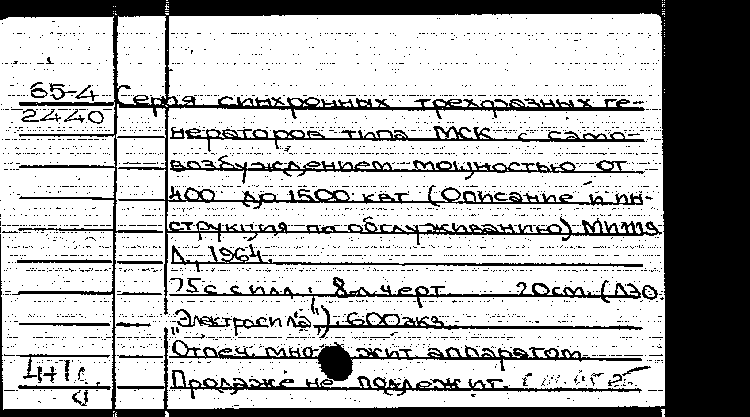 65-4 Серия синхронных трехфазных ге-
2440 нераторов типа МСК с само-
возбуждением мощностью от
400 до 1500 квт (Описание и ин-
струкция по обслуживанию)
Л., 1964.
75 с. с илл.; 8 л. черт. 20 см. (ЛЭО
"Электросила"). 600 экз.
Отпеч. множит аппаратом
Продаже не подлежит.